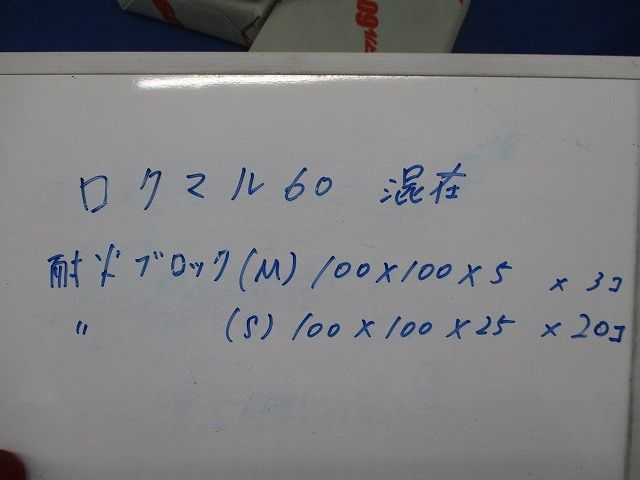 60
60½
ロクマル60 混在
耐火ブロック(M) 100×100×5 ×3コ
〃 (S) 100×100×25 ×20コ